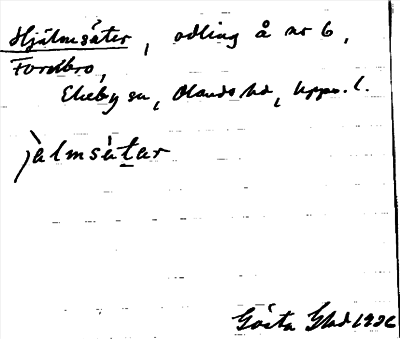 Hjälmsäter, odling å nr 6,
Fordbro,
Ekeby sn, Olands hd, Upps. l.
jàlmsátar
Gösta Glad 1936